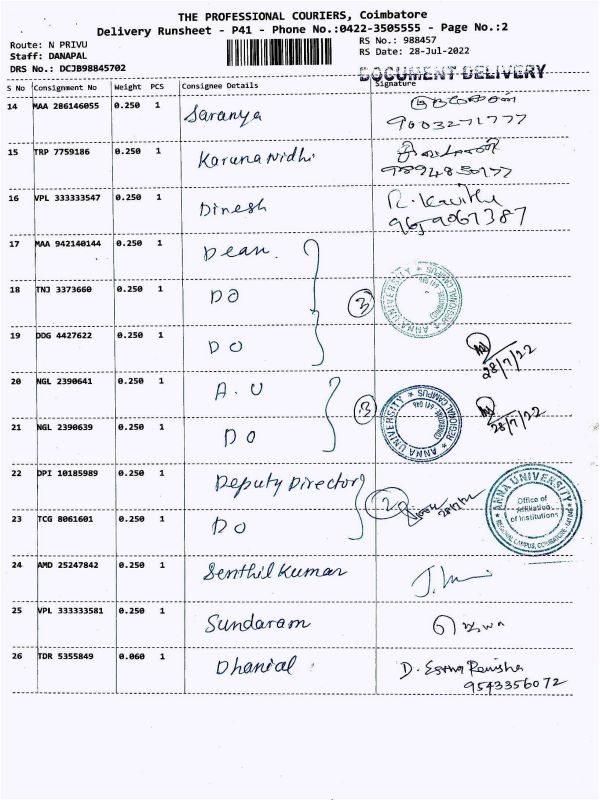 THE PROFESSIONAL COURIERS, Coimbatore
Delivery Runsheet - P41 - Phone No.:0422-3505555 - Page No.:2
Route: N PRIVU
RS No.: 988457
Staff: DANAPAL
RS Date: 28-Jul-2022
DRS No.: DCJB98845702
DOCUMENT DELIVERY
S No Consignment No Weight PCS Consignee Details Signature
14 MAA 286146055 0.250 1 Saranya
9003271777
15 TRP 7759186 0.250 1 Karunanidhi
9894830177
16 VPL 333333547 0.250 1 Dinesh R. Kavitha
9659067387
17 MAA 942140144 0.250 1 Dean.
18 TNJ 3373660 0.250 1 DO 3
ANNA UNIVERSITY REGIONAL CAMPUS COIMBATORE 641 046
19 DDG 4427622 0.250 1 DO
28/7/22
20 NGL 2390641 0.250 1 A.U
3
ANNA UNIVERSITY REGIONAL CAMPUS COIMBATORE 641 046
28/7/22
21 NGL 2390639 0.250 1 DO
22 DPI 10185989 0.250 1 Deputy Director
2
ANNA UNIVERSITY
Office of
Affiliation
of Institutions
REGIONAL CAMPUS, COIMBATORE-641 046
23 TCG 8061601 0.250 1 DO
24 AMD 25247842 0.250 1 Senthil Kumar
25 VPL 333333581 0.250 1 Sundaram
26 TDR 5355849 0.060 1 Dhanial D. Esther Renisha
9543356072